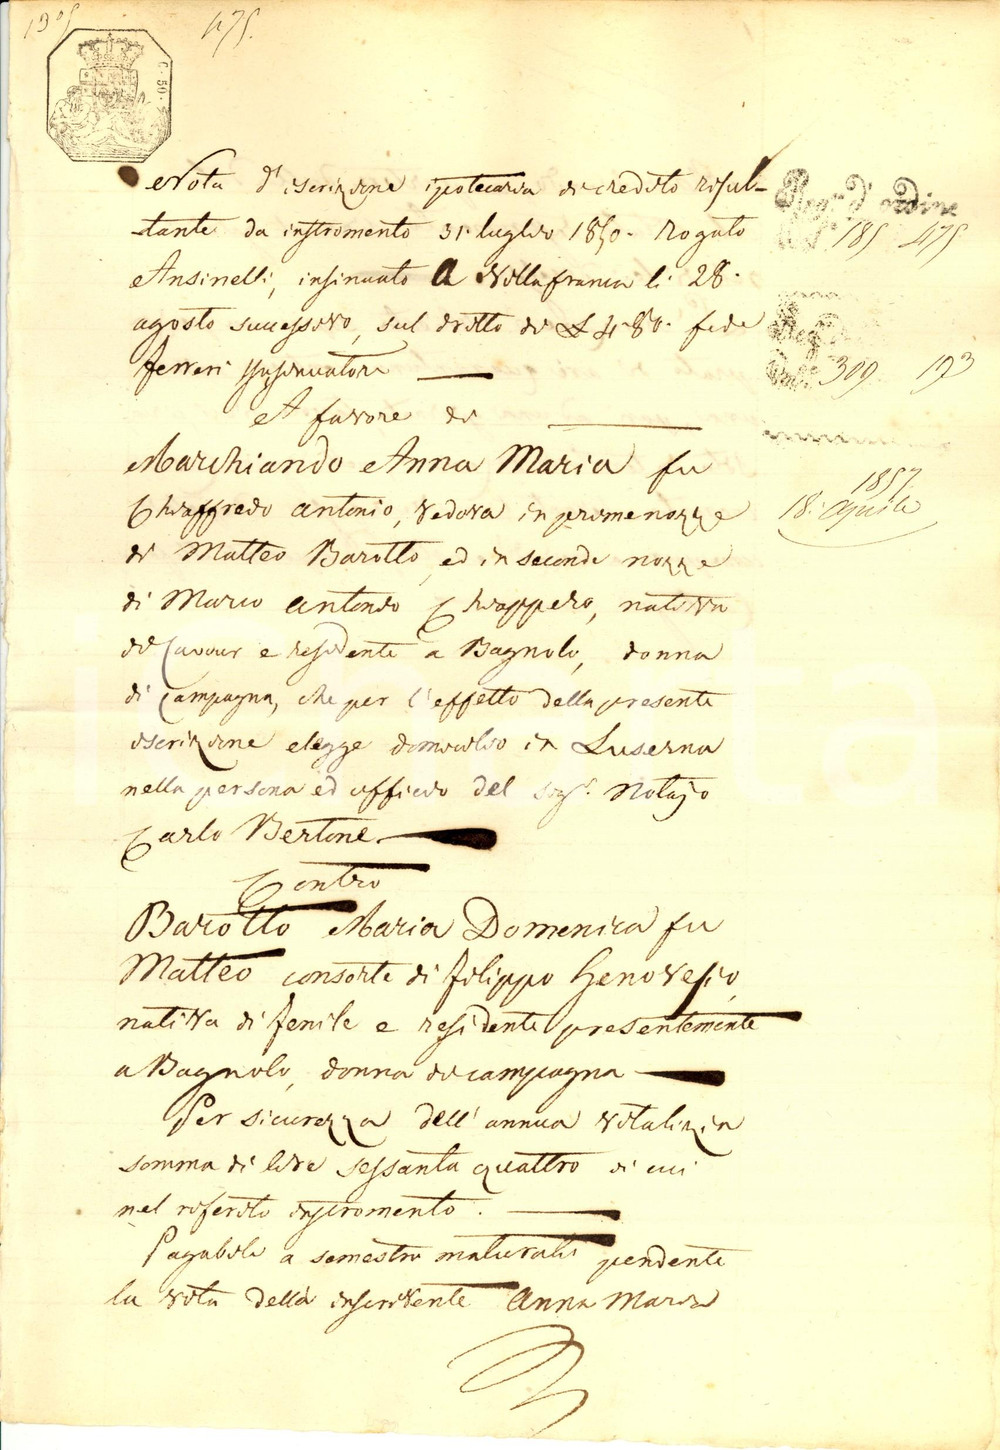 475.
C. 50.
Nota d'iscrizione ipotecaria di credito risul-
tante da instromento 31. luglio 1850. rogato
Ansinelli, insinuato a Villafranca li 28.
agosto successivo, sul dritto di £ 4. 80. fede
Ferreri
A favore di
Marchiando Anna Maria fu
Chiaffredo Antonio, vedova in prime nozze
di Matteo Barotto, ed in seconde nozze
di Marco Antonio Chiappero, nativa
di Cavour e residente a Bagnolo, donna
di campagna, che per l'effetto della presente
iscrizione elegge domicilio in Luserna
nella persona ed officio del sig.r Notajo
Carlo Bertone
Contro
Barotto Maria Domenica fu
Matteo consorte di Filippo Genovesio,
nativa di Fenile e residente presentemente
a Bagnolo, donna di campagna
Per sicurezza dell'annua vitalizia
somma di lire sessanta quattro di cui
nel riferito instromento.
Pagabile a semestri maturati pendente
la vita della inscrivente Anna Maria
Reg. d'ordine
185 475
309 193
1857
18. aprile